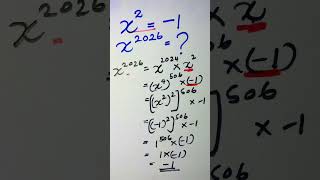 x² = -1
x²⁰²⁶ = ?
x²⁰²⁶ = x²⁰²⁴ × x²
= (x⁴)⁵⁰⁶ × (-1)
= [(x²)²]⁵⁰⁶ × -1
= [(-1)²]⁵⁰⁶ × -1
= 1⁵⁰⁶ × (-1)
= 1 × (-1)
= -1